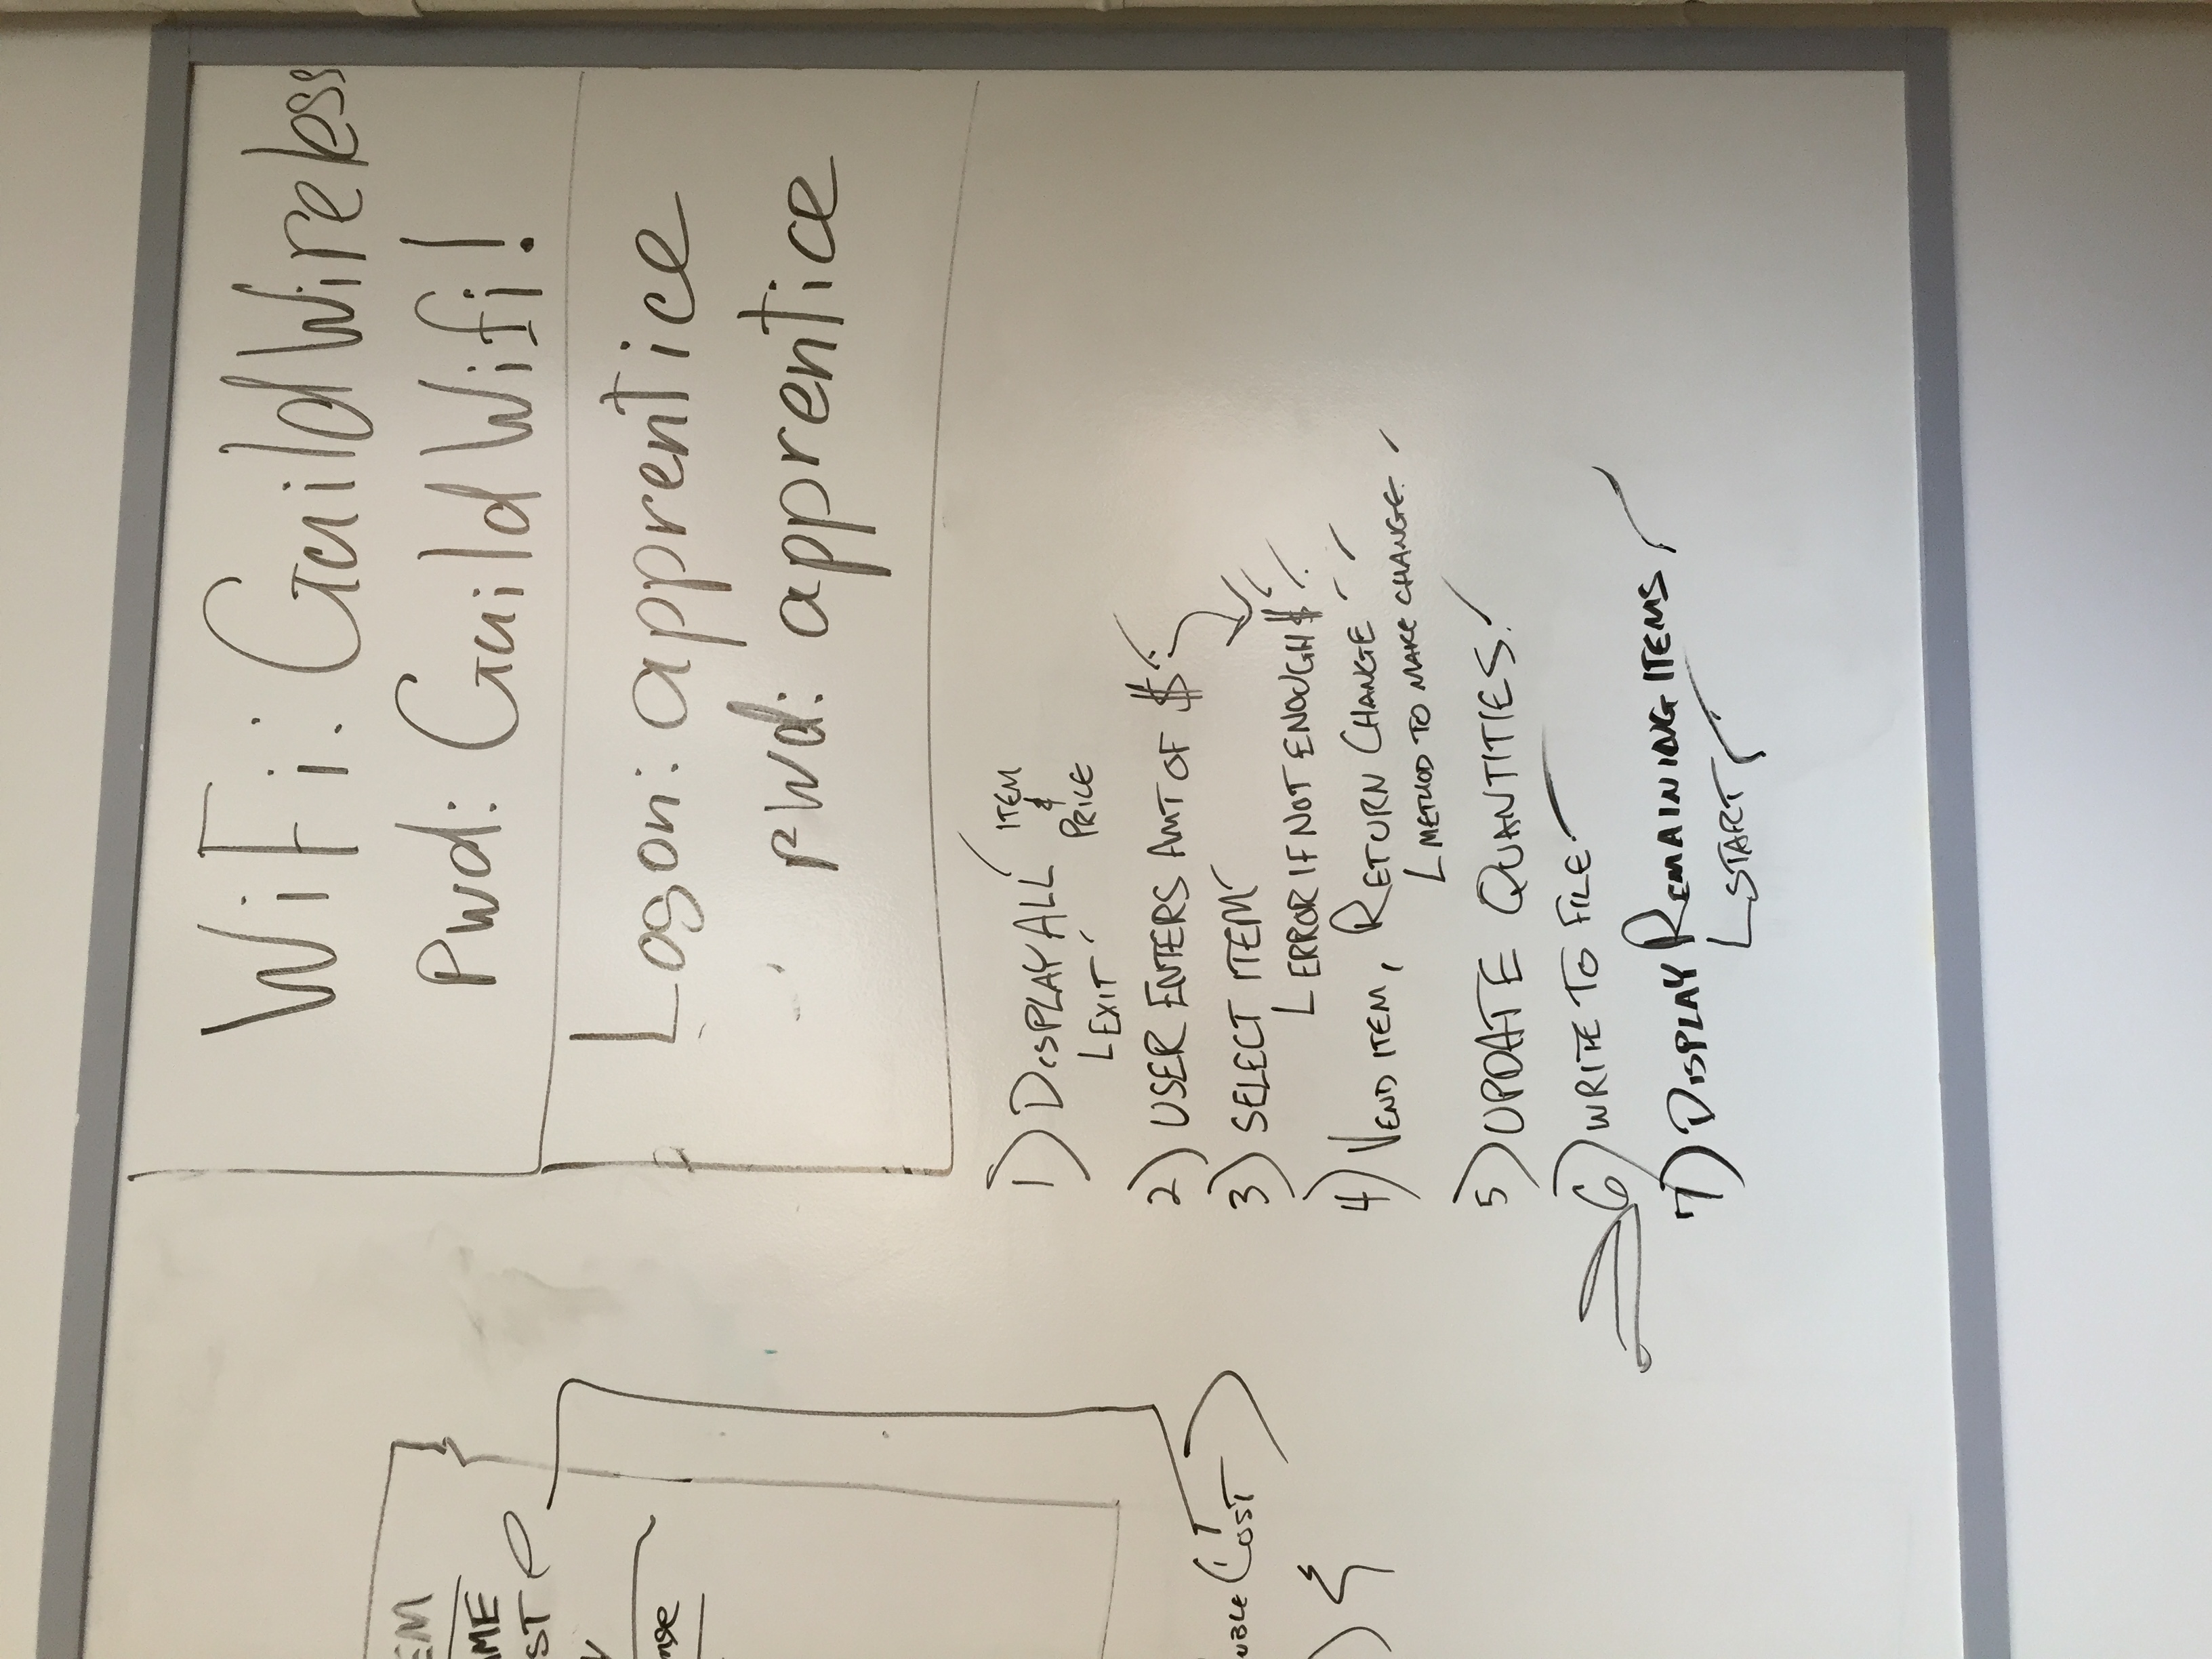 WiFi: GuildWireless
Pwd: GuildWifi!
Logon: apprentice
pwd: apprentice
EM
AME
ST
COST
1) DISPLAY ALL ITEM & PRICE
EXIT
2) USER ENTERS AMT OF $
3) SELECT ITEM
ERROR IF NOT ENOUGH $
4) VEND ITEM, RETURN CHANGE
METHOD TO MAKE CHANGE
5) UPDATE QUANTITIES
6) WRITE TO FILE
7) DISPLAY REMAINING ITEMS
START